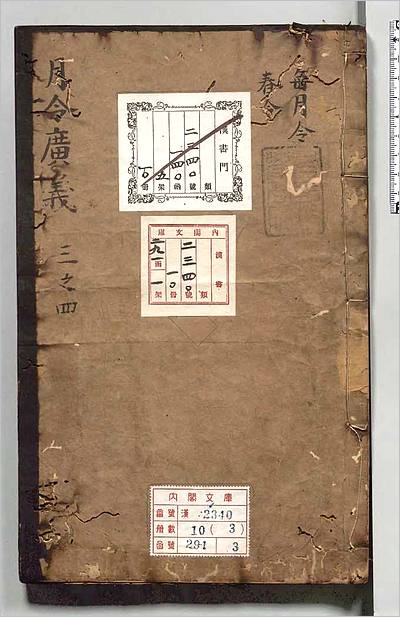 每月令
春令
月令廣義 三之四
漢書門
二三四〇
類
號
函
架
五
冊
一〇
內閣文庫
漢書
二三四〇
類
號
一〇
冊
二九一
函
一
架
內閣文庫
番號 漢 2340
冊數 10(3)
函號 291 3